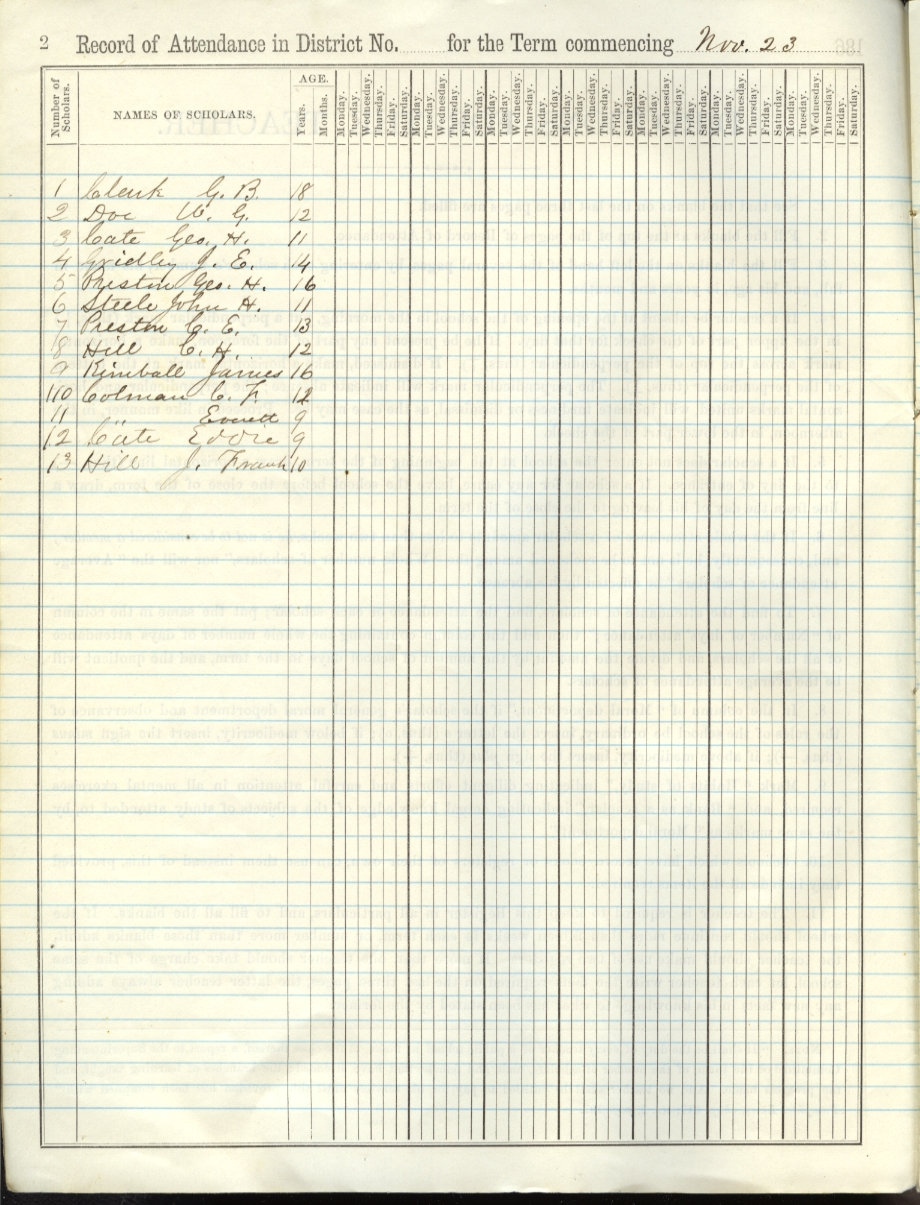 2 Record of Attendance in District No. for the Term commencing Nov. 23
Number of Scholars. NAMES OF SCHOLARS. AGE. Years. Months. Monday. Tuesday. Wednesday. Thursday. Friday. Saturday. Monday. Tuesday. Wednesday. Thursday. Friday. Saturday. Monday. Tuesday. Wednesday. Thursday. Friday. Saturday. Monday. Tuesday. Wednesday. Thursday. Friday. Saturday. Monday. Tuesday. Wednesday. Thursday. Friday. Saturday. Monday. Tuesday. Wednesday. Thursday. Friday. Saturday. Monday. Tuesday. Wednesday. Thursday. Friday. Saturday.
1 Clerk G. B. 18
2 Doe W. G. 12
3 Cate Geo. H. 11
4 Gridley J. E. 14
5 Preston Geo. H. 16
6 Steele John H. 11
7 Preston C. E. 13
8 Hill C. H. 12
9 Kimball James 16
10 Colman C. F. 12
11 " Everett 9
12 Cate Eddie 9
13 Hill J. Frank 10